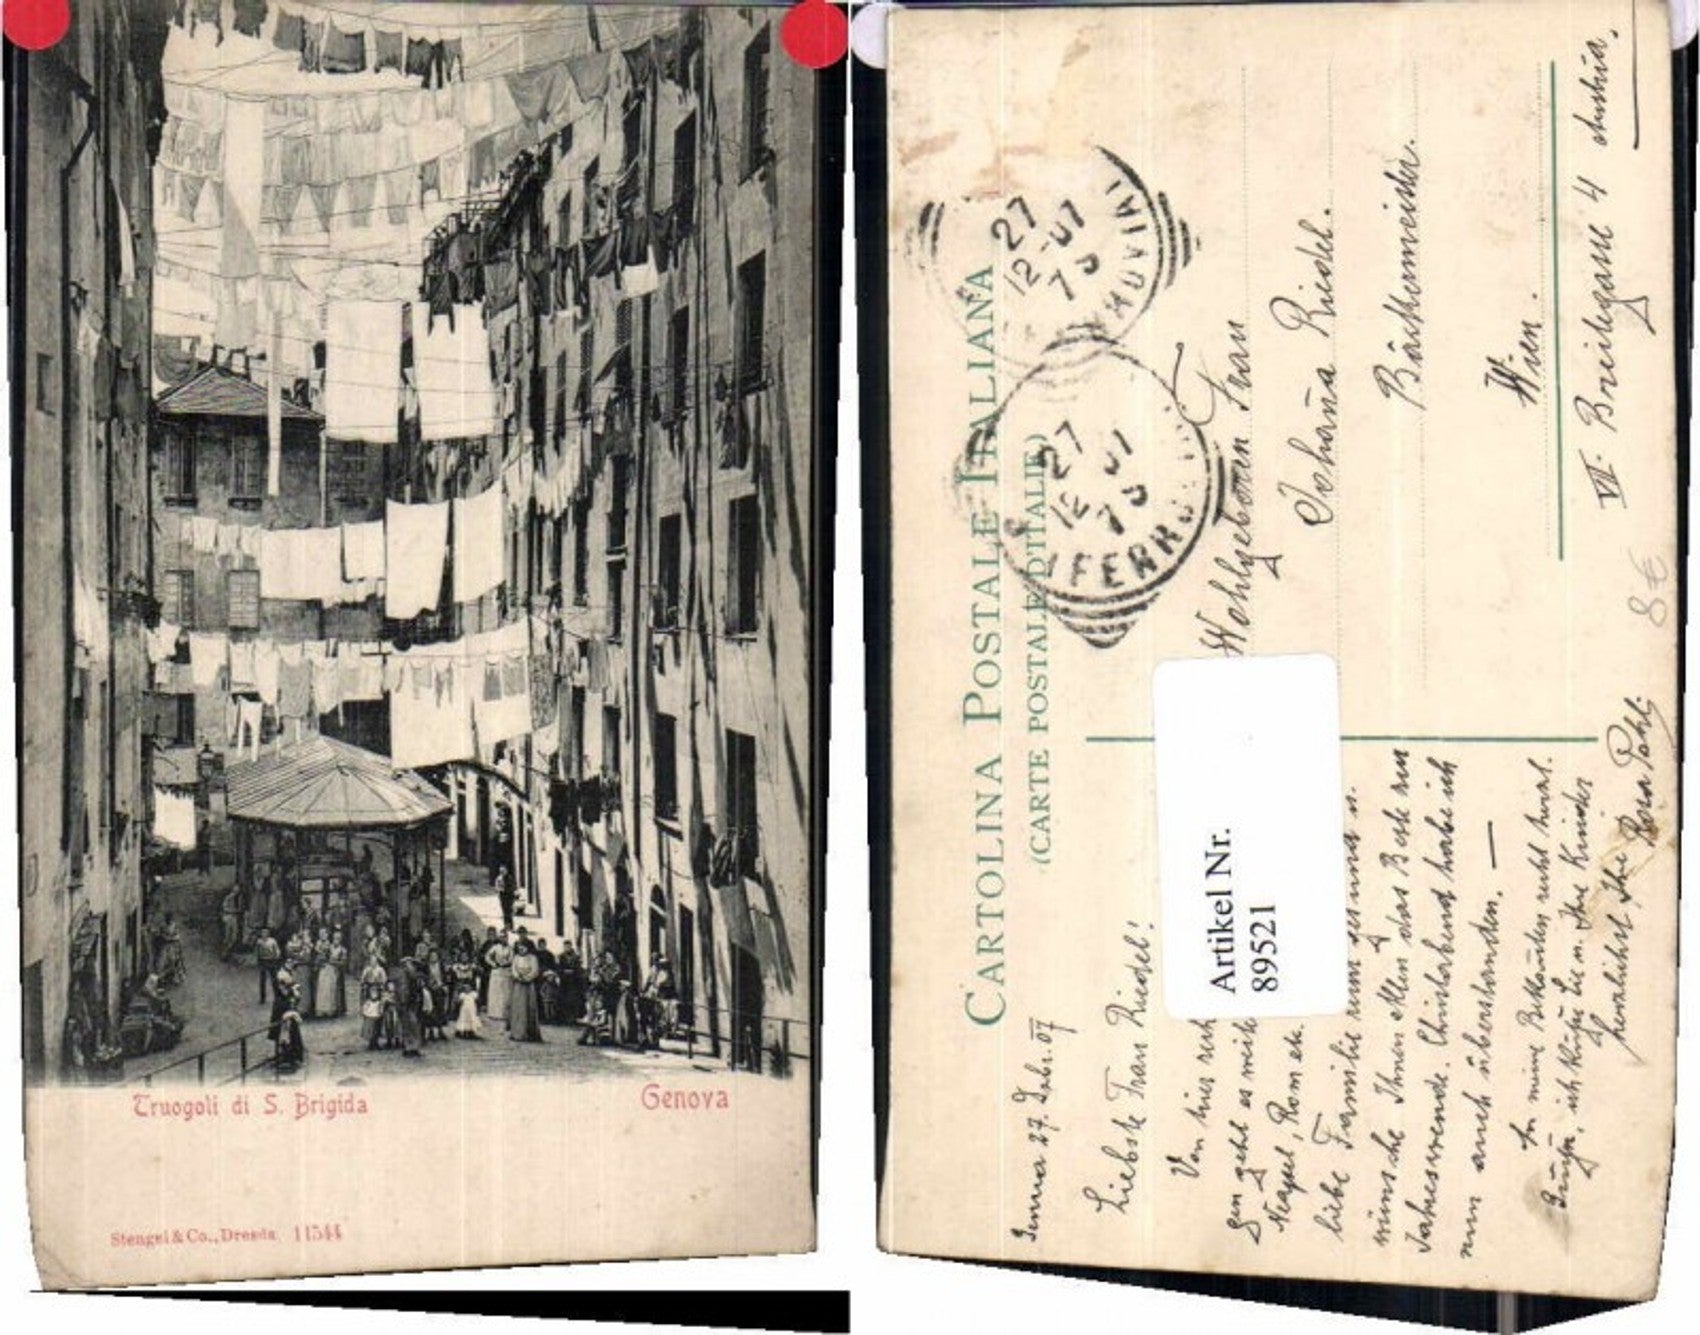 Truogoli di S. Brigida
Genova
Stengel & Co., Dresda 11544
CARTOLINA POSTALE ITALIANA
(CARTE POSTALE D'ITALIE)
27
12-07
7 S
27
12 07
7 S
FERR
Wohlgeboren Frau
Johana Riedel.
Bäckermeister.
Wien.
VII. Breitegasse 4 Austria.
8 €
Artikel Nr.
89521
Genua 27. Dez. 07
Liebste Frau Riedel!
Von hier
gen geht es weit
Neapel, Rom etc.
liebe Familie
wünsche Ihnen Allen das Beste zur
Jahreswende. Christabend habe ich
nun auch überstanden. —
An meine Bekannten recht herzl.
Grüße, ich küsse Sie u. Ihre Kinder
herzlichst Ihre Rosa Pohl